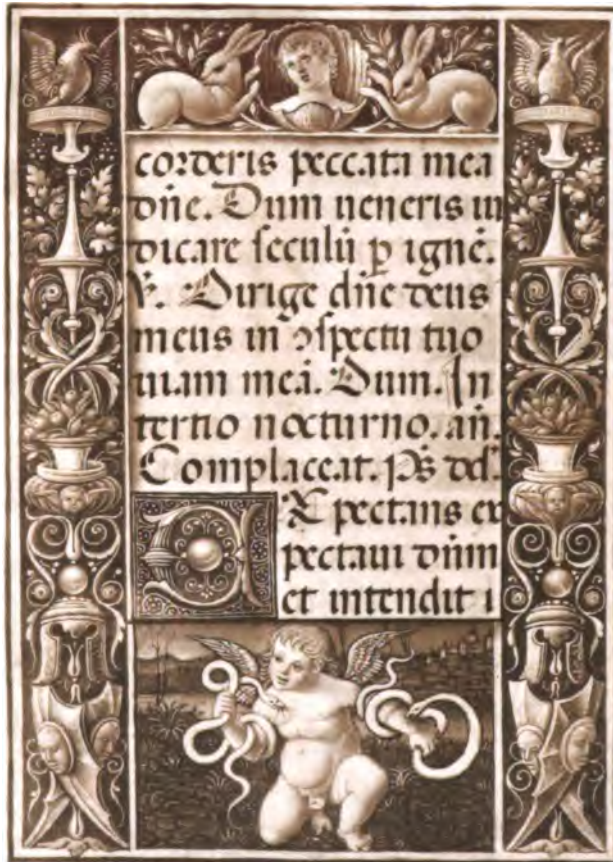 corderis peccata mea
dn̄e. Dum ueneris iu
dicare seculū ꝑ ignē.
℣. Dirige dn̄e deus
meus in ↄspectu tuo
uiam meā. Dum. In
tertio nocturno. an̄.
Complaceat. p̄s dd̄.
EX pectans ex
pectaui dn̄m
et intendit i